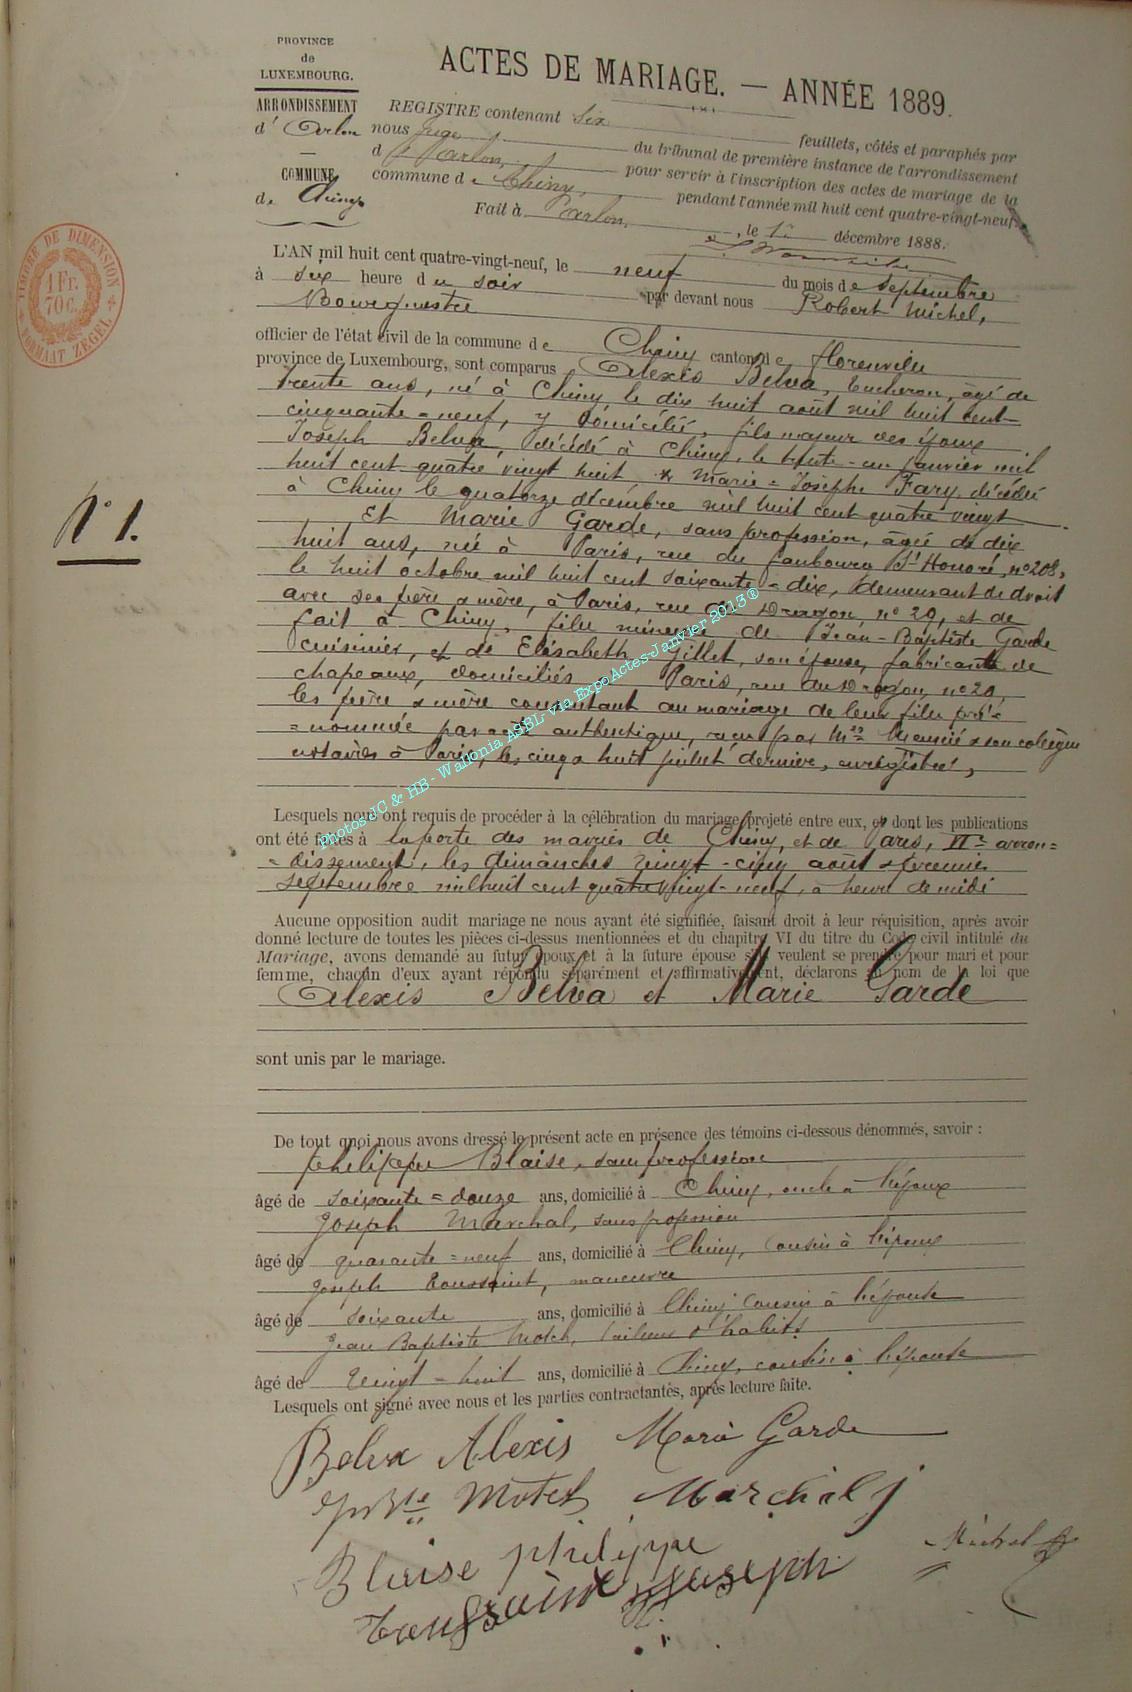 PROVINCE
de
LUXEMBOURG.
ARRONDISSEMENT
d' Arlon
COMMUNE
de Chiny
ACTES DE MARIAGE. — ANNÉE 1889.
REGISTRE contenant six feuillets, côtés et paraphés par
nous juge du tribunal de première instance de l'arrondissement
d'Arlon, pour servir à l'inscription des actes de mariage de la
commune de Chiny, pendant l'année mil huit cent quatre-vingt-neuf.
Fait à Arlon, le 1er décembre 1888.
TIMBRE DE DIMENSION
1 Fr.
70 C.
FORMAAT ZEGEL
N° 1.
L'AN mil huit cent quatre-vingt-neuf, le neuf du mois de Septembre
à six heure du soir par devant nous Robert Michel,
Bourgmestre
officier de l'état civil de la commune de Chiny canton de Florenville
province de Luxembourg, sont comparus Alexis Belva, bucheron, âgé de
trente ans, né à Chiny le dix huit août mil huit cent
cinquante = neuf, y domicilié, fils majeur des époux
Joseph Belva, décédé à Chiny, le trente-un janvier mil
huit cent quatre vingt huit, & Marie = Josèphe Fary, décédée
à Chiny le quatorze décembre mil huit cent quatre vingt
Et Marie Garde, sans profession, âgée de dix
huit ans, née à Paris, rue du faubourg St Honoré, n° 208,
le huit octobre mil huit cent soixante = dix, demeurant de droit
avec ses père & mère, à Paris, rue du Dragon, n° 20, et de
fait à Chiny, fille mineure de Jean-Baptiste Garde
cuisinier, et de Elisabeth Gillet, son épouse, fabricante de
chapeaux, domiciliés à Paris, rue du Dragon, n° 20,
les père & mère consentant au mariage de leur fille pré=
=nommée par acte authentique, reçu par Mes Meunié & son collègue
notaires à Paris, les cinq & huit juillet dernier, enregistré,
Photos JC & HB - Wallonia ASBL via Expo Actes-Janvier 2013®
Lesquels nous ont requis de procéder à la célébration du mariage projeté entre eux, et dont les publications
ont été faites à la porte des mairies de Chiny, et de Paris, VIe arron=
=dissement, les dimanches vingt-cinq août & premier
septembre mil huit cent quatre vingt-neuf, à heure de midi
Aucune opposition audit mariage ne nous ayant été signifiée, faisant droit à leur réquisition, après avoir
donné lecture de toutes les pièces ci-dessus mentionnées et du chapitre VI du titre du Code civil intitulé du
Mariage, avons demandé au futur époux et à la future épouse s'ils veulent se prendre pour mari et pour
femme, chacun d'eux ayant répondu séparément et affirmativement, déclarons au nom de la loi que
Alexis Belva et Marie Garde
sont unis par le mariage.
De tout quoi nous avons dressé le présent acte en présence des témoins ci-dessous dénommés, savoir :
Philippe Blaise, sans profession
âgé de soixante = douze ans, domicilié à Chiny, oncle à l'époux
Joseph Marchal, sans profession
âgé de quarante = neuf ans, domicilié à Chiny, cousin à l'époux
Joseph Toussaint, manœuvre
âgé de soixante ans, domicilié à Chiny cousin à l'épouse
Jean Baptiste Motch, tailleur d'habits
âgé de vingt = huit ans, domicilié à Chiny, cousin à l'épouse
Lesquels ont signé avec nous et les parties contractantés, après lecture faite.
Belva Alexis Maria Garde
Motch Marchal j
Blaise philippe Michel
Toussaint joseph